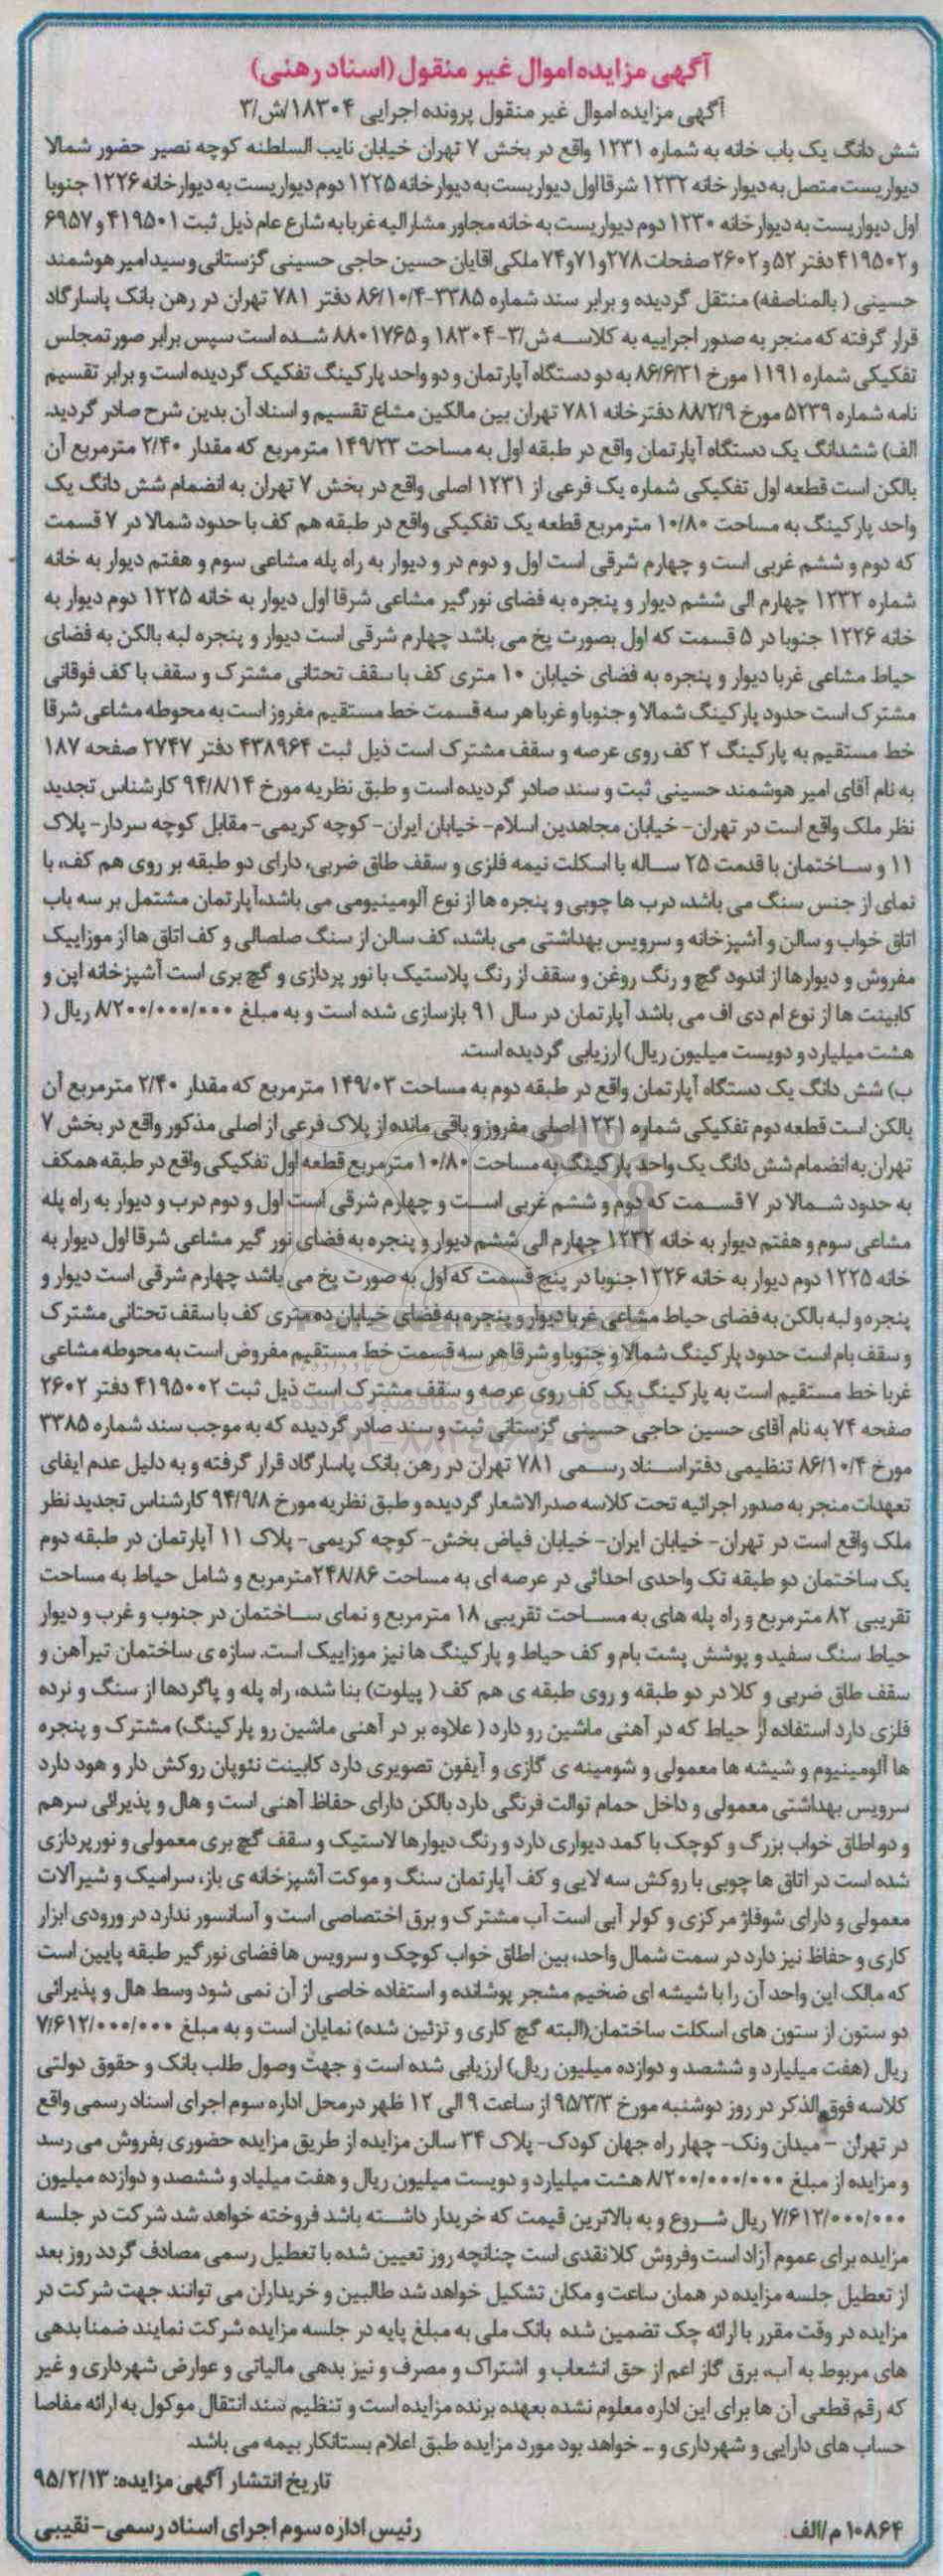 آگهی مزایده اموال غیر منقول (اسناد رهنی)
آگهی مزایده اموال غیر منقول پرونده اجرایی ۱۸۳۰۴/ش/۳
شش دانگ یک باب خانه به شماره ۱۲۳۱ واقع در بخش ۷ تهران خیابان نایب السلطنه کوچه نصیر حضور شمالا
دیواریست متصل به دیوار خانه ۱۲۳۲ شرقا اول دیواریست به دیوار خانه ۱۲۲۵ دوم دیواریست به دیوار خانه ۱۲۲۶ جنوبا
اول دیواریست به دیوار خانه ۱۲۳۰ دوم دیواریست به خانه مجاور مشارالیه غربا به شارع عام ذیل ثبت ۴۱۹۵۰۱ و ۶۹۵۷
و ۴۱۹۵۰۲ دفتر ۵۲ و ۲۶۰۲ صفحات ۲۷۸ و ۷۱ و ۷۴ ملکی اقایان حسین حاجی حسینی گزستانی و سید امیر هوشمند
حسینی (بالمناصفه) منتقل گردیده و برابر سند شماره ۳۳۸۵-۸۶/۱۰/۴ دفتر ۷۸۱ تهران در رهن بانک پاسارگاد
قرار گرفته که منجر به صدور اجراییه به کلاسه ش/۳-۱۸۳۰۴ و ۸۸۰۱۷۶۵ شده است سپس برابر صورتمجلس
تفکیکی شماره ۱۱۹۱ مورخ ۸۶/۶/۳۱ به دو دستگاه آپارتمان و دو واحد پارکینگ تفکیک گردیده است و برابر تقسیم
نامه شماره ۵۲۳۹ مورخ ۸۸/۲/۹ دفترخانه ۷۸۱ تهران بین مالکین مشاع تقسیم و اسناد آن بدین شرح صادر گردید.
الف) ششدانگ یک دستگاه آپارتمان واقع در طبقه اول به مساحت ۱۴۹/۲۳ مترمربع که مقدار ۲/۴۰ مترمربع آن
بالکن است قطعه اول تفکیکی شماره یک فرعی از ۱۲۳۱ اصلی واقع در بخش ۷ تهران به انضمام شش دانگ یک
واحد پارکینگ به مساحت ۱۰/۸۰ مترمربع قطعه یک تفکیکی واقع در طبقه هم کف با حدود شمالا در ۷ قسمت
که دوم و ششم غربی است و چهارم شرقی است اول و دوم در و دیوار به راه پله مشاعی سوم و هفتم دیوار به خانه
شماره ۱۲۳۲ چهارم الی ششم دیوار و پنجره به فضای نورگیر مشاعی شرقا اول دیوار به خانه ۱۲۲۵ دوم دیوار به
خانه ۱۲۲۶ جنوبا در ۵ قسمت که اول بصورت پخ می باشد چهارم شرقی است دیوار و پنجره لبه بالکن به فضای
حیاط مشاعی غربا دیوار و پنجره به فضای خیابان ۱۰ متری کف با سقف تحتانی مشترک و سقف با کف فوقانی
مشترک است حدود پارکینگ شمالا و جنوبا و غربا هر سه قسمت خط مستقیم مفروز است به محوطه مشاعی شرقا
خط مستقیم به پارکینگ ۲ کف روی عرصه و سقف مشترک است ذیل ثبت ۴۳۸۹۶۴ دفتر ۲۷۴۷ صفحه ۱۸۷
به نام آقای امیر هوشمند حسینی ثبت و سند صادر گردیده است و طبق نظریه مورخ ۹۴/۸/۱۴ کارشناس تجدید
نظر ملک واقع است در تهران- خیابان مجاهدین اسلام- خیابان ایران- کوچه کریمی- مقابل کوچه سردار- پلاک
۱۱ و ساختمان با قدمت ۲۵ ساله با اسکلت نیمه فلزی و سقف طاق ضربی، دارای دو طبقه بر روی هم کف، با
نمای از جنس سنگ می باشد، درب ها چوبی و پنجره ها از نوع آلومینیومی می باشد، آپارتمان مشتمل بر سه باب
اتاق خواب و سالن و آشپزخانه و سرویس بهداشتی می باشد، کف سالن از سنگ صلصالی و کف اتاق ها از موزاییک
مفروش و دیوارها از اندود گچ و رنگ روغن و سقف از رنگ پلاستیک با نور پردازی و گچ بری است آشپزخانه اپن و
کابینت ها از نوع ام دی اف می باشد آپارتمان در سال ۹۱ بازسازی شده است و به مبلغ ۸/۲۰۰/۰۰۰/۰۰۰ ریال (
هشت میلیارد و دویست میلیون ریال) ارزیابی گردیده است.
ب) شش دانگ یک دستگاه آپارتمان واقع در طبقه دوم به مساحت ۱۴۹/۰۳ مترمربع که مقدار ۲/۴۰ مترمربع آن
بالکن است قطعه دوم تفکیکی شماره ۱۲۳۱ اصلی مفروز و باقی مانده از پلاک فرعی از اصلی مذکور واقع در بخش ۷
تهران به انضمام شش دانگ یک واحد پارکینگ به مساحت ۱۰/۸۰ مترمربع قطعه اول تفکیکی واقع در طبقه همکف
به حدود شمالا در ۷ قسمت که دوم و ششم غربی است و چهارم شرقی است اول و دوم درب و دیوار به راه پله
مشاعی سوم و هفتم دیوار به خانه ۱۲۳۲ چهارم الی ششم دیوار و پنجره به فضای نور گیر مشاعی شرقا اول دیوار به
خانه ۱۲۲۵ دوم دیوار به خانه ۱۲۲۶ جنوبا در پنج قسمت که اول به صورت پخ می باشد چهارم شرقی است دیوار و
پنجره و لبه بالکن به فضای حیاط مشاعی غربا دیوار و پنجره به فضای خیابان ده متری کف با سقف تحتانی مشترک
و سقف بام است حدود پارکینگ شمالا و جنوبا و شرقا هر سه قسمت خط مستقیم مفروض است به محوطه مشاعی
غربا خط مستقیم است به پارکینگ یک کف روی عرصه و سقف مشترک است ذیل ثبت ۴۱۹۵۰۰۲ دفتر ۲۶۰۲
صفحه ۷۴ به نام آقای حسین حاجی حسینی گزستانی ثبت و سند صادر گردیده که به موجب سند شماره ۳۳۸۵
مورخ ۸۶/۱۰/۴ تنظیمی دفتر اسناد رسمی ۷۸۱ تهران در رهن بانک پاسارگاد قرار گرفته و به دلیل عدم ایفای
تعهدات منجر به صدور اجرائیه تحت کلاسه صدرالاشعار گردیده و طبق نظریه مورخ ۹۴/۹/۸ کارشناس تجدید نظر
ملک واقع است در تهران- خیابان ایران- خیابان فیاض بخش- کوچه کریمی- پلاک ۱۱ آپارتمان در طبقه دوم
یک ساختمان دو طبقه تک واحدی احداثی در عرصه ای به مساحت ۲۴۸/۸۶ مترمربع و شامل حیاط به مساحت
تقریبی ۸۲ مترمربع و راه پله های به مساحت تقریبی ۱۸ مترمربع و نمای ساختمان در جنوب و غرب و دیوار
حیاط سنگ سفید و پوشش پشت بام و کف حیاط و پارکینگ ها نیز موزاییک است. سازه ی ساختمان تیرآهن و
سقف طاق ضربی و کلا در دو طبقه و روی طبقه ی هم کف (پیلوت) بنا شده، راه پله و پاگردها از سنگ و نرده
فلزی دارد استفاده از حیاط که در آهنی ماشین رو دارد (علاوه بر در آهنی ماشین رو پارکینگ) مشترک و پنجره
ها آلومینیوم و شیشه ها معمولی و شومینه ی گازی و آیفون تصویری دارد کابینت نئوپان روکش دار و هود دارد
سرویس بهداشتی معمولی و داخل حمام توالت فرنگی دارد بالکن دارای حفاظ آهنی است و هال و پذیرائی سرهم
و دو اطاق خواب بزرگ و کوچک با کمد دیواری دارد و رنگ دیوارها لاستیک و سقف گچ بری معمولی و نورپردازی
شده است در اتاق ها چوبی با روکش سه لایی و کف آپارتمان سنگ و موکت آشپزخانه ی باز، سرامیک و شیرآلات
معمولی و دارای شوفاژ مرکزی و کولر آبی است آب مشترک و برق اختصاصی است و آسانسور ندارد در ورودی ابزار
کاری و حفاظ نیز دارد در سمت شمال واحد، بین اطاق خواب کوچک و سرویس ها فضای نورگیر طبقه پایین است
که مالک این واحد آن را با شیشه ای ضخیم مشجر پوشانده و استفاده خاصی از آن نمی شود وسط هال و پذیرائی
دو ستون از ستون های اسکلت ساختمان (البته گچ کاری و تزئین شده) نمایان است و به مبلغ ۷/۶۱۲/۰۰۰/۰۰۰
ریال (هفت میلیارد و ششصد و دوازده میلیون ریال) ارزیابی شده است و جهت وصول طلب بانک و حقوق دولتی
کلاسه فوق الذکر در روز دوشنبه مورخ ۹۵/۳/۳ از ساعت ۹ الی ۱۲ ظهر درمحل اداره سوم اجرای اسناد رسمی واقع
در تهران - میدان ونک- چهار راه جهان کودک- پلاک ۳۴ سالن مزایده از طریق مزایده حضوری بفروش می رسد
و مزایده از مبلغ ۸/۲۰۰/۰۰۰/۰۰۰ هشت میلیارد و دویست میلیون ریال و هفت میلیاد و ششصد و دوازده میلیون
۷/۶۱۲/۰۰۰/۰۰۰ ریال شروع و به بالاترین قیمت که خریدار داشته باشد فروخته خواهد شد شرکت در جلسه
مزایده برای عموم آزاد است وفروش کلا نقدی است چنانچه روز تعیین شده با تعطیل رسمی مصادف گردد روز بعد
از تعطیل جلسه مزایده در همان ساعت و مکان تشکیل خواهد شد طالبین و خریداران می توانند جهت شرکت در
مزایده در وقت مقرر با ارائه چک تضمین شده بانک ملی به مبلغ پایه در جلسه مزایده شرکت نمایند ضمنا بدهی
های مربوط به آب، برق گاز اعم از حق انشعاب و اشتراک و مصرف و نیز بدهی مالیاتی و عوارض شهرداری و غیر
که رقم قطعی آن ها برای این اداره معلوم نشده بعهده برنده مزایده است و تنظیم سند انتقال موکول به ارائه مفاصا
حساب های دارایی و شهرداری و ... خواهد بود مورد مزایده طبق اعلام بستانکار بیمه می باشد.
تاریخ انتشار آگهی مزایده: ۹۵/۲/۱۳
رئیس اداره سوم اجرای اسناد رسمی - نقیبی
۱۰۸۶۴ م/الف